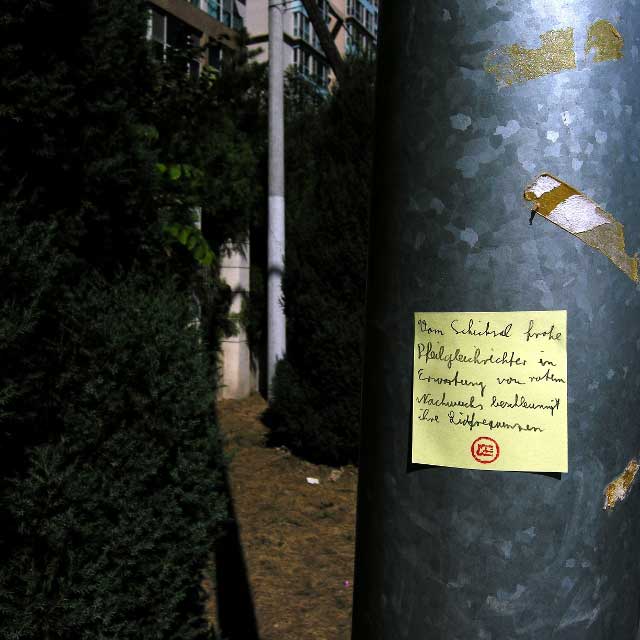 Vom Schicksal frohe
Pfeilgleichrichter in
Erwartung von rotem
Nachwuchs
ihre Eidfrequenzen